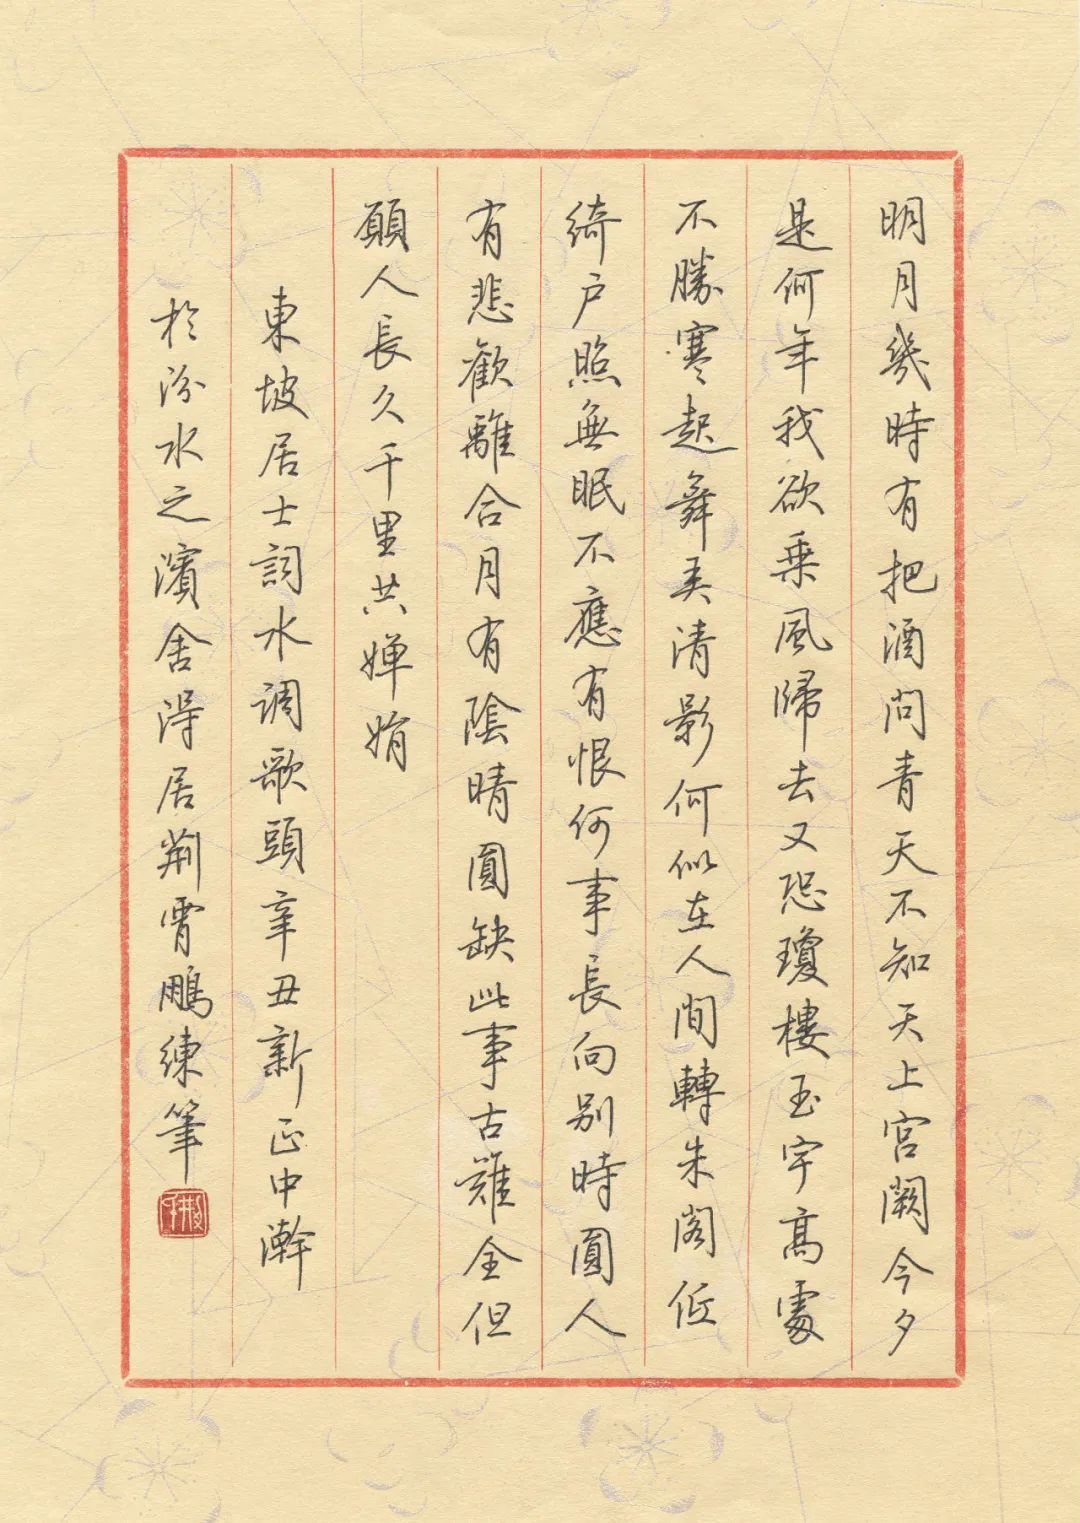 明月幾時有把酒問青天不知天上宮闕今夕
是何年我欲乘風歸去又恐瓊樓玉宇高處
不勝寒起舞弄清影何似在人間轉朱閣低
綺户照無眠不應有恨何事長向别時圓人
有悲歡離合月有陰晴圓缺此事古難全但
願人長久千里共嬋娟
東坡居士詞水调歌頭辛丑新正中澣
於汾水之濱舍得居荆霄鵬練筆